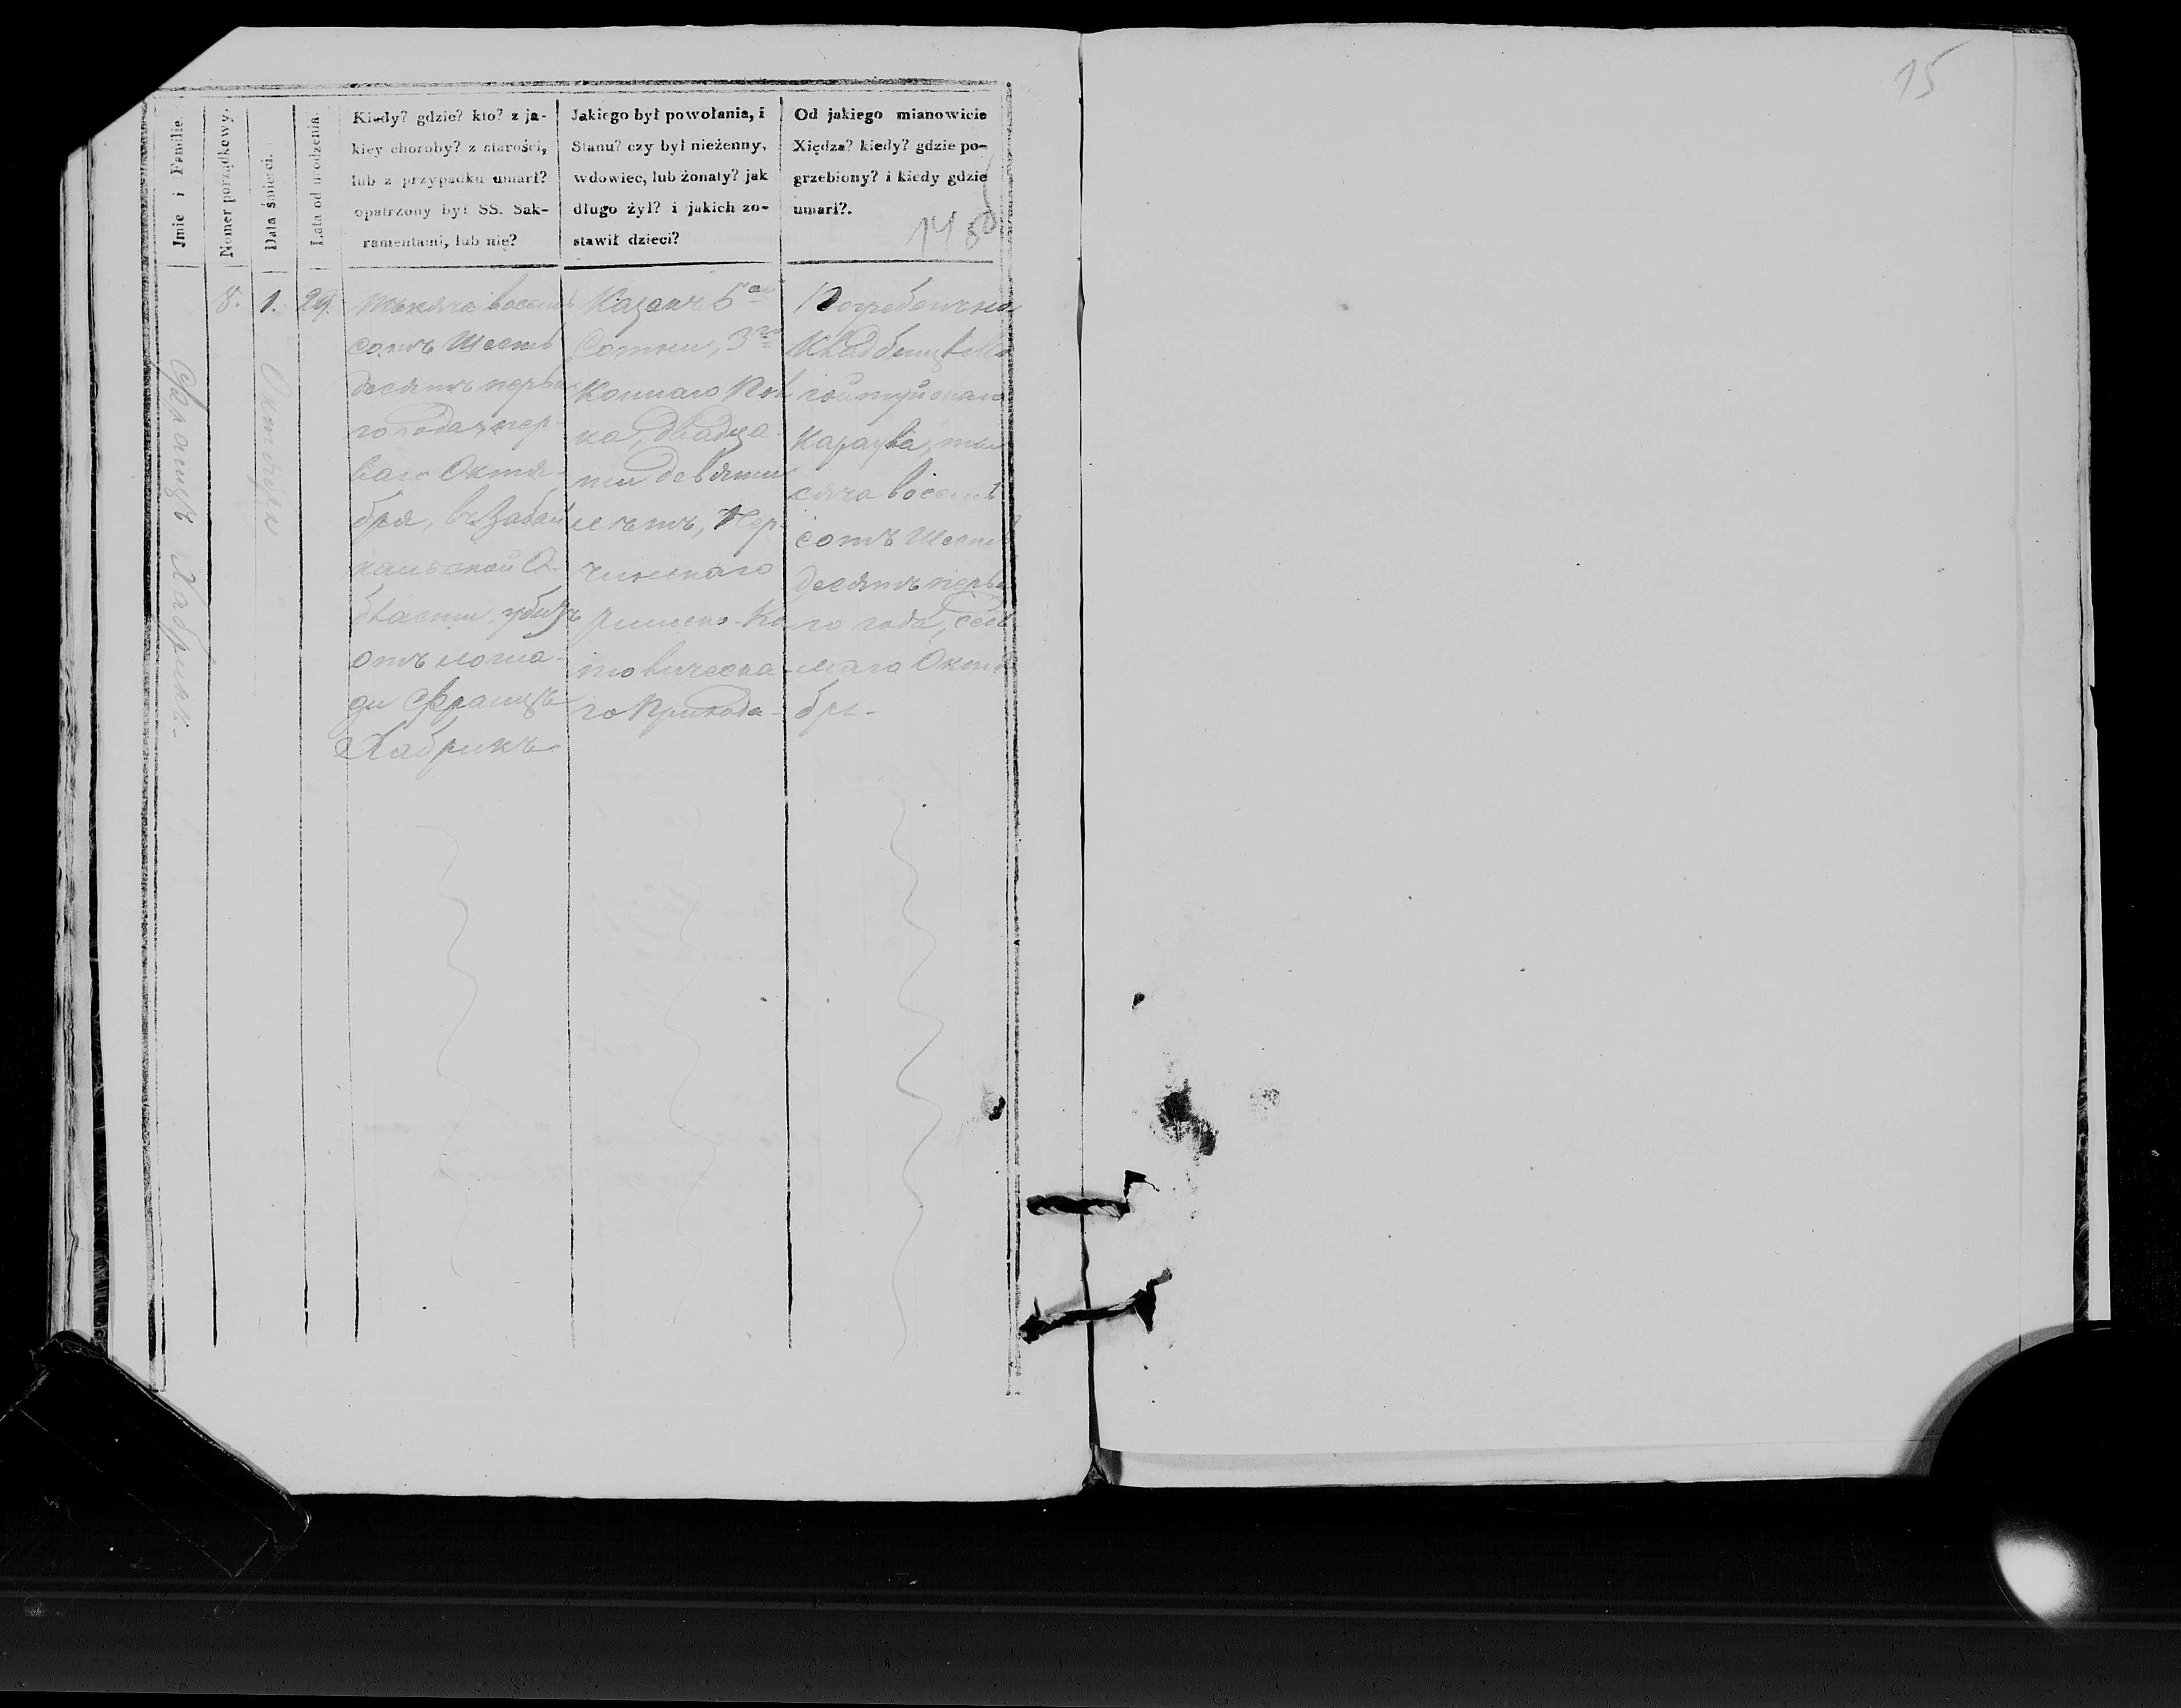 15
Jmie i Familie.
Nomer porządkowy.
Data śmierci.
Lata od urodzenia.
Kiedy? gdzie? kto? z ja-
kiey choroby? z starości,
lub z przypadku umarł?
opatrzony był SS. Sak-
ramentami, lub nie?
Jakiego był powołania, i
Stanu? czy był nieżenny,
wdowiec, lub żonaty? jak
długo żył? i jakich zo-
stawił dzieci?
Od jakiego mianowicie
Xiędza? kiedy? gdzie po-
grzebiony? i kiedy gdzie
umarł?.
14
Францъ Хабрикъ.
8.
1.
Октября
29.
тысяча восемь
сотъ шесть
десятъ перва
го года, пер-
ваго Октя-
бря, въ Забай
кальской О-
бласти, убитъ
отъ лоша-
ди Францъ
Хабрикъ
Казакъ 5ой
Сотни, 3го
Коннаго Пол
ка, двадца-
ти девяти
летъ, Нер-
чинскаго
Римско-Ка
толическа-
го Прихода-
Погребенъ на
Кладбищѣ
караула, ты
сяча восемь
сотъ шесть
десятъ перва
го года, седь
маго Октя
бря-